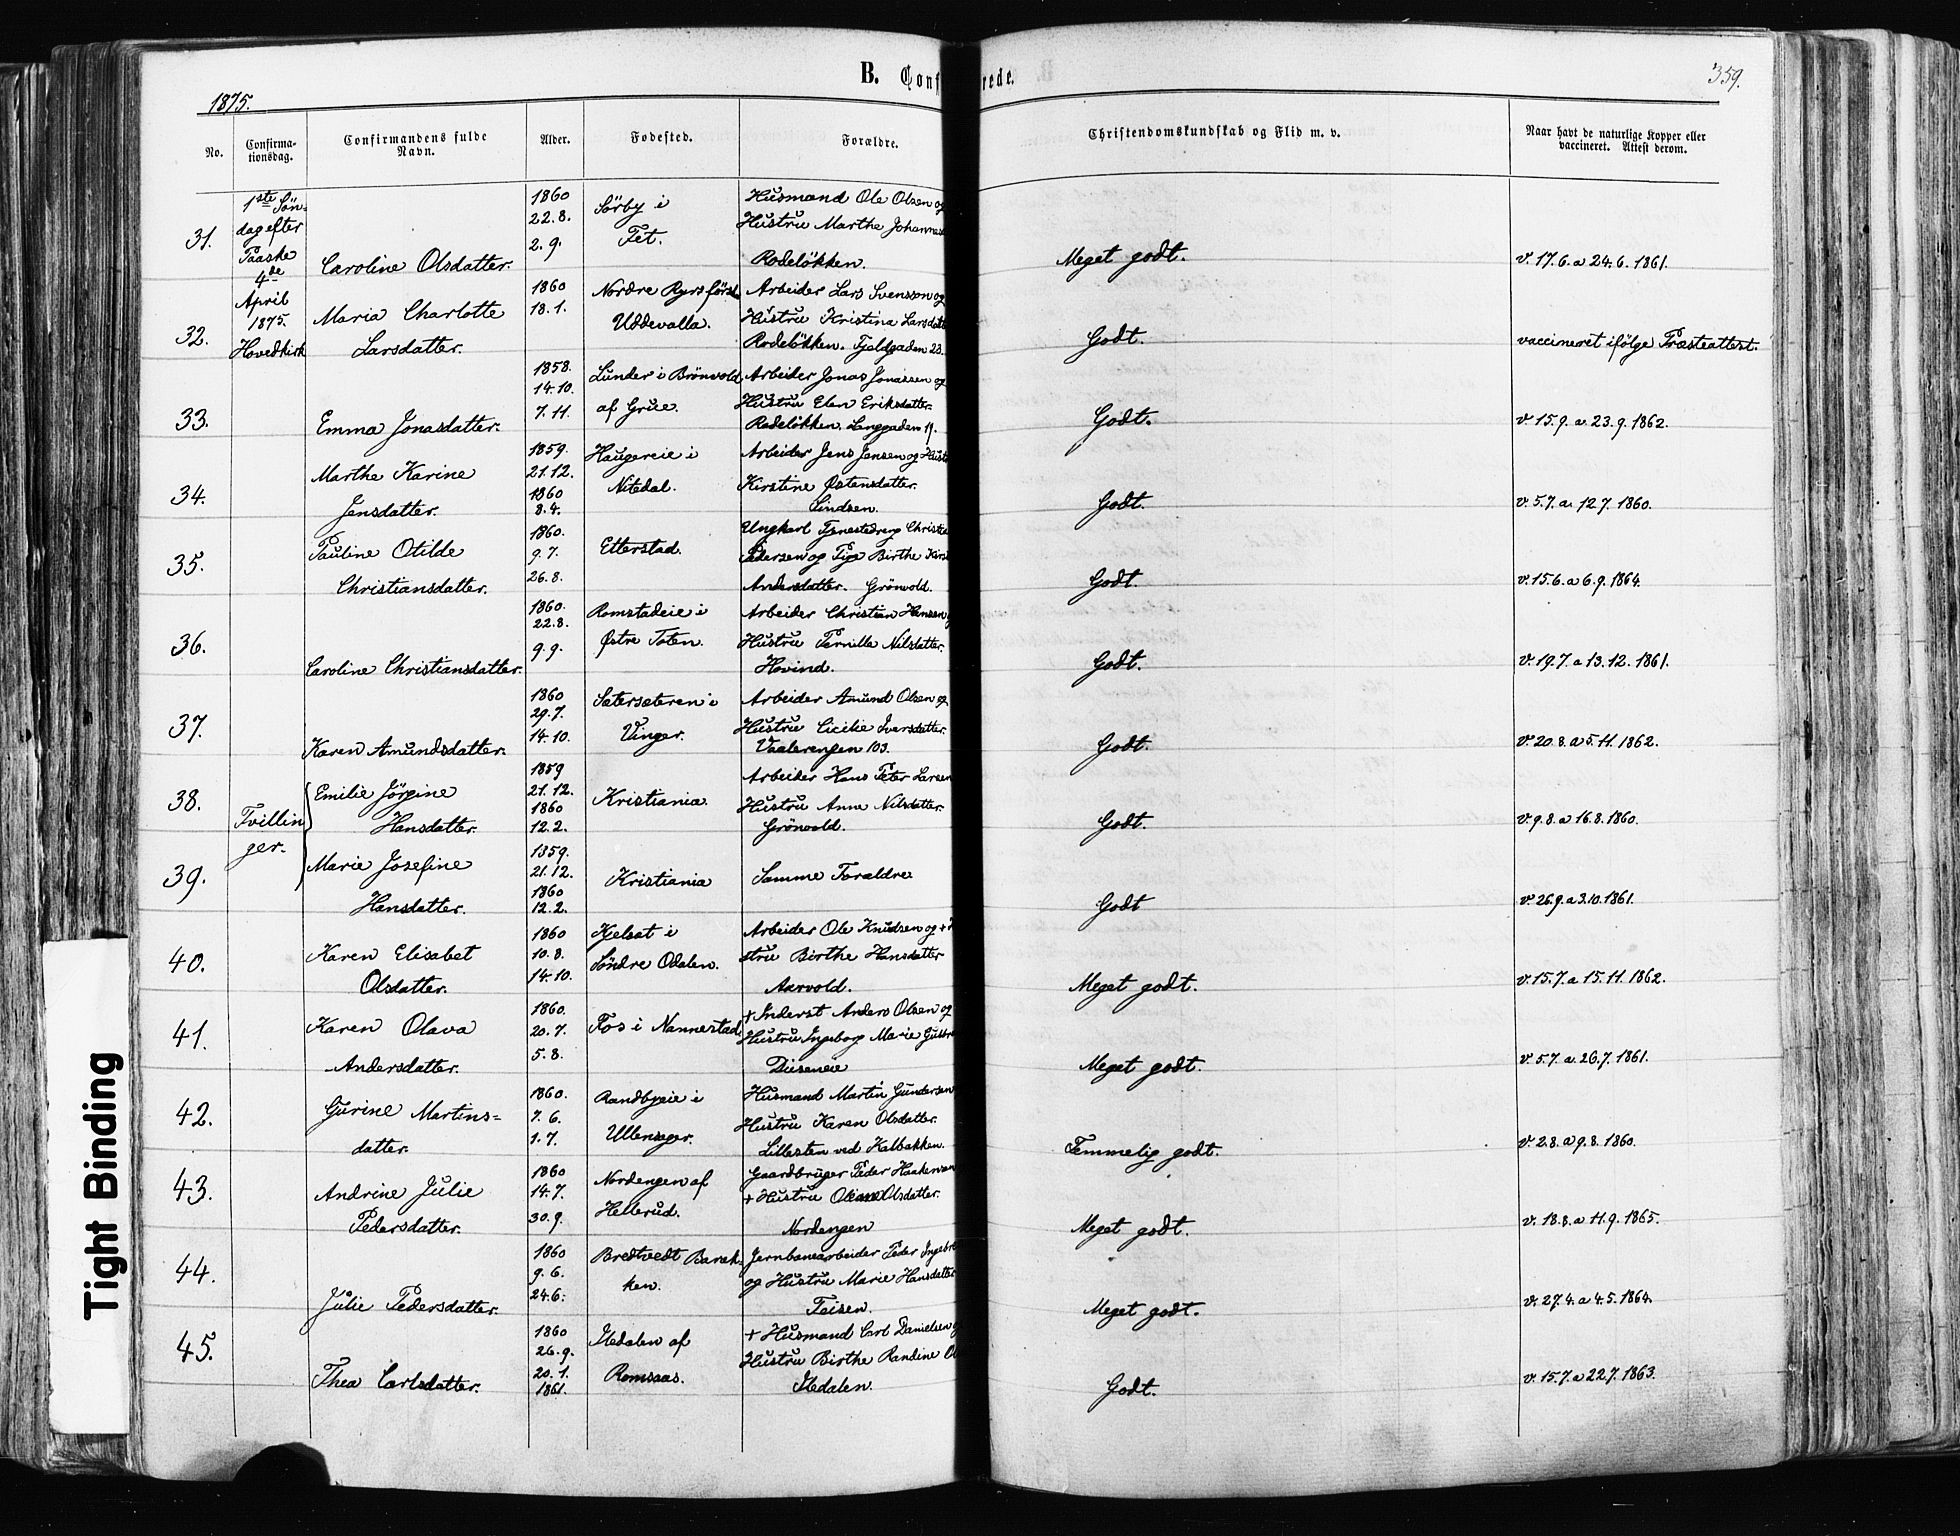 B. Conf
rede.
359.
1875.
No.
Confirma-
tionsdag.
Confirmandens fulde
Navn.
Alder.
Fødested.
Forældre.
Christendomskundskab og Flid m. v.
Naar havt de naturlige Kopper eller
vaccineret. Attest derom.
31.
1ste Søn-
dag efter
Paaske
4de
April
1875.
Hovedkirk
Caroline Olsdatter.
1860
22.8.
2.9.
Sørby i
Fet.
Husmand Ole Olsen og
Hustru Marthe Johannes
Rodeløkken.
Meget godt.
v. 17.6. a 24.6. 1861.
32.
Maria Charlotte
Larsdatter.
1860
18.1.
Nordre
Uddevalla.
Arbeider Lars Svensson og
Hustru Kristina Larsdatt
Rodeløkken. Fjeldgaden 23.
Godt.
vaccineret ifølge Præsteattest.
33.
Emma Jonasdatter.
1858.
14.10.
7.11.
Lunder i Brönvold
af Grue.
Arbeider Jonas Jonassen og
Hustru Elen Eriksdatter.
Rodeløkken. Langgaden 11.
Godt.
v. 15.9. a. 23.9. 1862.
34.
Marthe Karine
Jensdatter.
1859.
21.12.
1860
8.4.
Haugereie i
Nitedal.
Arbeider Jens Jensen og Hust
Kirstine Østensdatter.
Sindsen.
Godt.
v. 5.7. a. 12.7. 1860.
35.
Pauline Otilde
Christiansdatter.
1860.
9.7.
26.8.
Etterstad.
Ungkarl Tjenestedreng Christia
Pedersen og Pige Birthe Kirst
Andersdatter. Grönvold.
Godt.
v. 15.6. a 6.9. 1864.
36.
Caroline Christiansdatter.
1860.
22.8.
9.9.
Romstadeie i
Østre Toten.
Arbeider Christian Hansen
Hustru Pernille Nilsdatter.
Hovind.
Godt.
v. 19.7. a 13.12. 1861.
37.
Karen Amundsdatter.
1860
29.7.
14.10.
Sætersæteren i
Vinger.
Arbeider Amund Olsen og
Hustru Cicilie Iversdatter.
Vaalerengen 103.
Godt.
v. 20.8. a 5.11. 1862.
38.
Tvillin
ger.
Emilie Jörgine
Hansdatter.
1859
21.12.
1860
12.2.
Kristiania.
Arbeider Hans Peter Larsen
Hustru Anne Nilsdatter.
Grönvold.
Godt.
v. 9.8. a 16.8. 1860.
39.
Marie Josefine
Hansdatter.
1859.
21.12.
1860
12.2.
Kristiania
Samme Forældre
Godt
v. 26.9. a 3.10. 1861.
40.
Karen Elisabet
Olsdatter.
1860
10.8.
14.10.
Kjelsat i
Söndre Odalen.
Arbeider Ole Knudsen og +
stru Birthe Hansdatter
Aarvold.
Meget godt.
v. 15.7. a 15.11. 1862.
41.
Karen Olava
Andersdatter.
1860.
20.7.
5.8.
Fos i Nannestad
+ Inderst Anders Olsen og
Hustru Ingeborg Marie
Duseneie
Meget godt.
v. 5.7. a. 26.7. 1861.
42.
Gurine Martins-
datter.
1860.
7.6.
1.7.
Randbyeie i
Ullensager.
Husmand Martin Gundersen
Hustru Karen Olsdatter.
Lillesten ved Kalbakken.
Temmelig godt.
v. 2.8. a 9.8. 1860.
43.
Andrine Julie
Pedersdatter.
1860
14.7.
30.9.
Nordengen af
Hellerud.
Gaardbruger Peder Haakensen
+ Hustru Oleane Olsdatter.
Nordengen
Meget godt.
v. 18.8. a 11.9. 1865.
44.
Julie Pedersdatter.
1860
9.6.
24.6.
Bredtvedt Barak
ken.
Jernbanearbeider Peder Ingebr
og Hustru Marie Hansdatter
Teisen.
Meget godt.
v. 27.4. a 4.5. 1864.
45.
Thea Carlsdatter.
1860
26.9.
20.1.
1861.
Hedalen af
Romsaas.
+ Husmand Carl Danielsen
Hustru Birthe Randine
Hedalen.
Godt.
v. 15.7. a 22.7. 1863.
Tight Binding